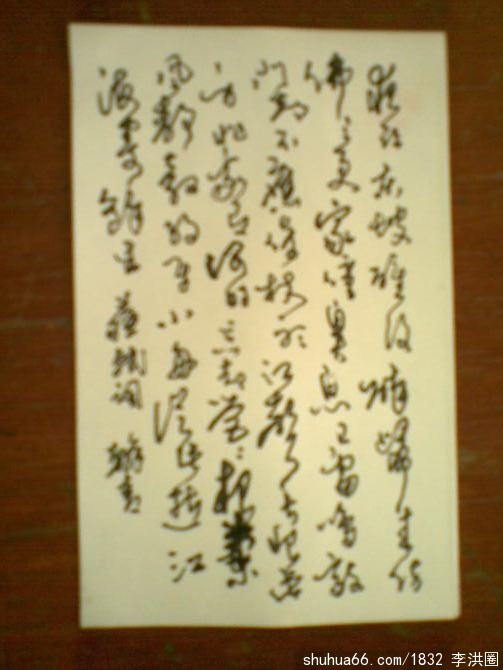 夜饮东坡醒复醉歸来仿
佛三更家僮鼻息已雷鸣敲
门都不應倚杖听江声长恨此
身非我有何时忘却营营夜阑
风静縠纹平小舟从此逝江
海寄餘生 蘇軾词
shuhua66.com/1832 李洪圈